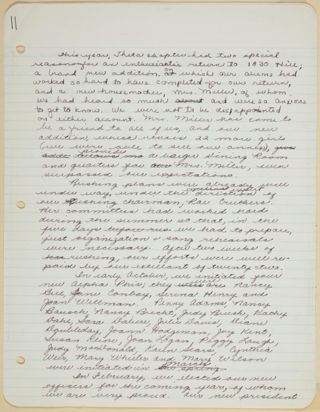 11
This year, Theta chapter had two special
reasons for an enthusiastic return to 1030 Hill,
a brand new addition, on which our alums had
worked so hard to have completed for our return,
and a new housemother, Mrs. Miller, of whom
we had heard so much about and were so anxious
to get to know. We were not to be disappointed
on either account. Mrs. Miller has come to
be a friend to all of us, and our new
addition, which houses so many girls
(we were able to use our annex),
provides a larger dining room
and quarters for Mrs. Miller, even
surpassed our expectations.
Rushing plans were already well
under way, under the direction of
our rushing chairman, Rae
Her committees had worked hard
during the summer so that, in the
five days before rush we had to prepare,
just organization & song rehearsals
were necessary. After two weeks of
rushing, our efforts were well re-
paid by our excellent of twenty-two.
In early October, we initiated
new Alpha Phis, they were Nancy
Bell, Jane Serena Henry and
Joan Wellman. Anny Adams, Nancy
Bausch, Nancy Brecht, Judy Brush, Kathy
Dahl, Sara Julie Davis, Diane
Joann Hodgman, Joy Kent,
Susan Kline, Joan Logan, Peggy Lough,
Judy MacDonald, Karin Cynthia
Weir, Mary Wheeler and Mary Wilson
were initiated in the spring.
In February, we elected our new
officers for the coming year, of whom
we are very proud. Our new president